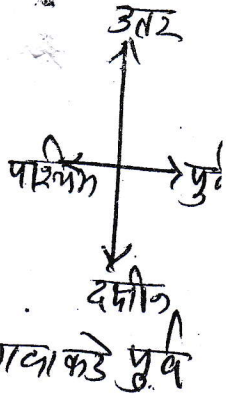 उतर
पश्चिम पुर्व
दक्षीन
कडे पुर्व